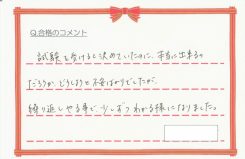 Q.合格のコメント
試験を受けると決めていたのに、本当に出来るの
だろうか、どうしようと不安ばかりでしたが、
繰り返しやる事で少しずつわかる様になりました。